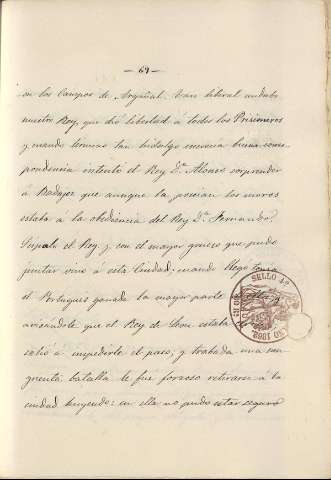 — 69 —
en los Campos de Argañal. Tan liberal andubo
nuestro Rey, que dió libertad á todos los Prisioneros
y, cuando tan hidalgo merecia buena corres
pondencia intentó el Rey Dⁿ. Alonso sorprender
á Badajoz que aunque la poseian los moros
estaba á la obediencia del Rey Dⁿ. Fernando.
Súpolo el Rey, y con el mayor que pudo
juntar vino á esta Ciudad; cuando llegó tenia
el Portugues ganada la mayor parte y
avisándole que el Rey de Leon estaba
salió á impedirle el paso, y trabada una san
grienta batalla le fué forzoso retirarse á la
ciudad huyendo: en ella no pudo estar seguro
SELLO 4º